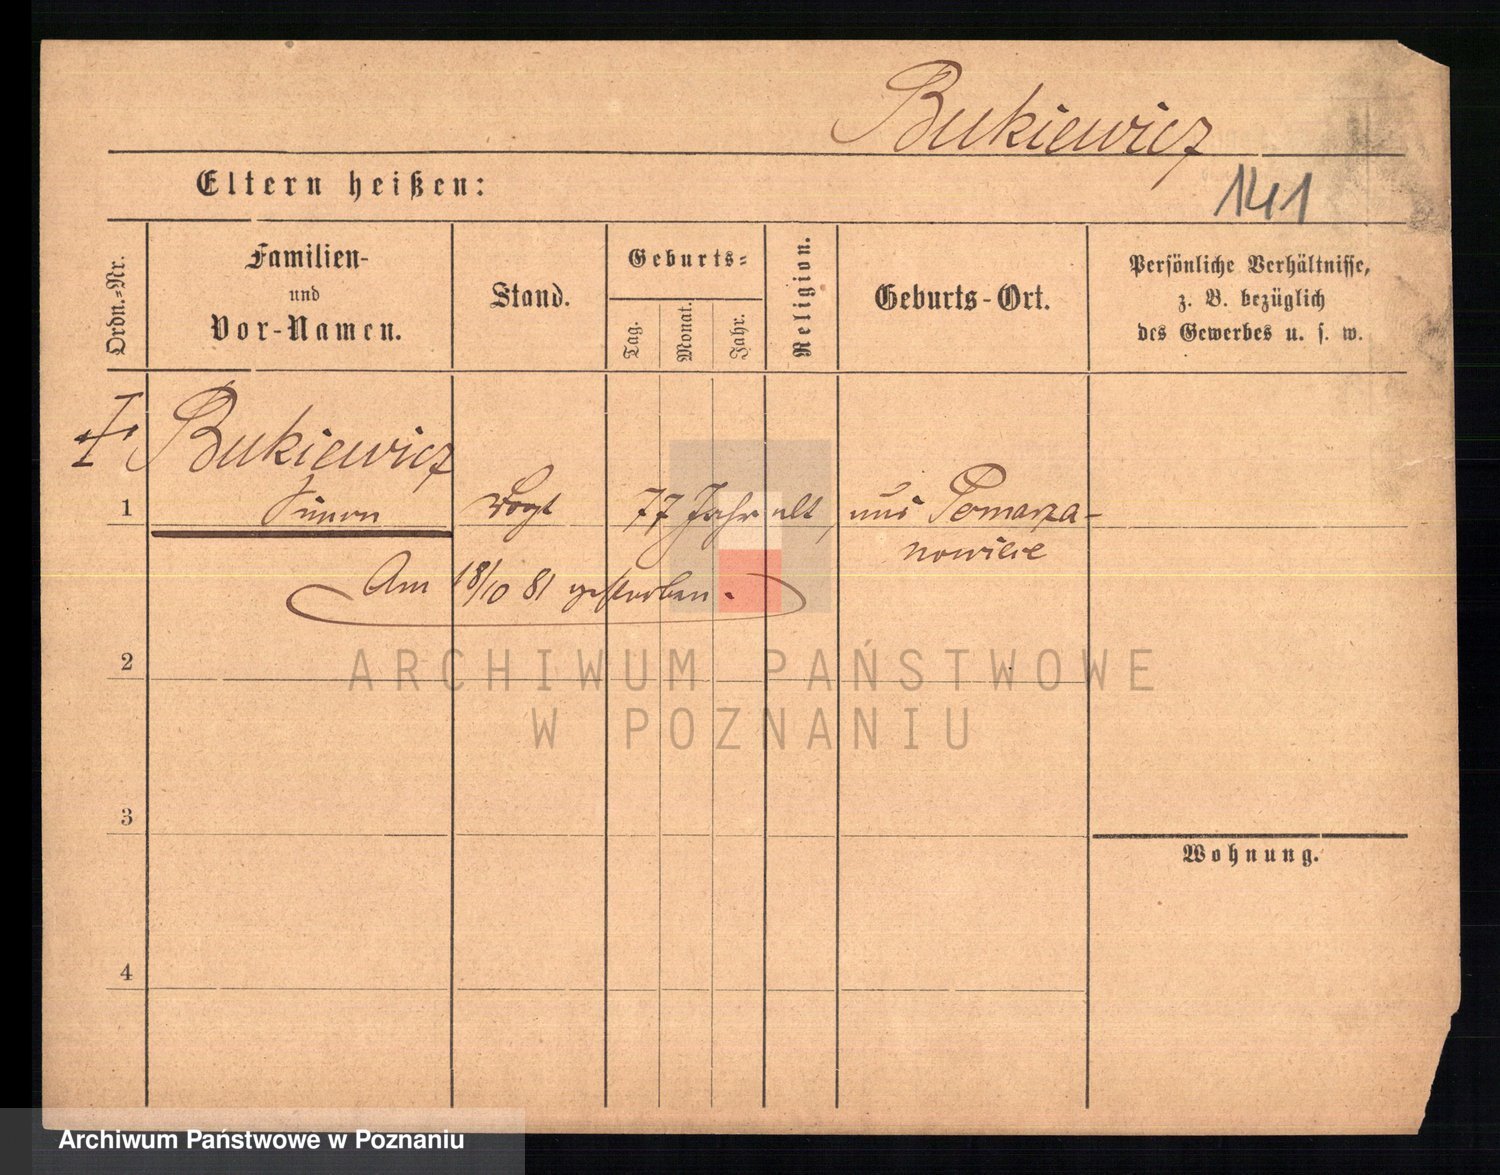 Bukiewicz
Eltern heißen:
141
Ordn.-Nr.
Familien-
und
Vor-Namen.
Stand.
Geburts-
Tag.
Monat.
Jahr.
Religion.
Geburts-Ort.
Persönliche Verhältnisse,
z. B. bezüglich
des Gewerbes u. s. w.
Bukiewicz
1 Simon Vogt 77 Jahr alt, aus Pomarza-
nowice
Am 18/10 81 gestorben.
2
ARCHIWUM PAŃSTWOWE
W POZNANIU
3
Wohnung.
4
Archiwum Państwowe w Poznaniu